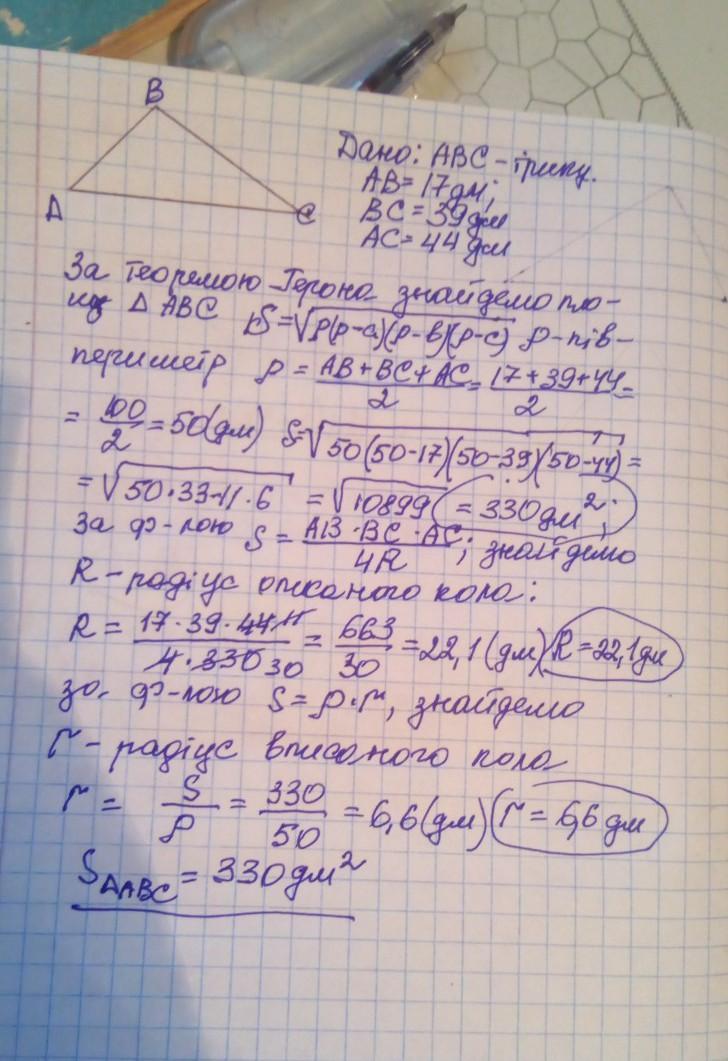 B
A
C
Дано: ABC - трику.
AB = 17 дм;
BC = 39 дм
AC = 44 дм
За теоремою Герона знайдемо пло-
щу Δ ABC S=√p(p-a)(p-в)(p-c) p-пів-
периметр p = AB+BC+AC/2 = 17+39+44/2 =
= 100/2 = 50(дм) S=√50(50-17)(50-39)(50-44) =
= √50·33·11·6 = √10899 = 330 дм²;
за ф-лою S = AB·BC·AC/4R; знайдемо
R - радіус описаного кола:
R = 17·39·44 11/4·330 30 = 663/30 = 22,1 (дм) R = 22,1 дм
за ф-лою S = p·r, знайдемо
r - радіус вписаного кола
r = S/p = 330/50 = 6,6 (дм) r = 6,6 дм
SΔABC = 330 дм²